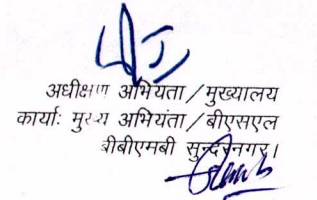 अधीक्षण अभियंता/मुख्यालय
कार्याः मुख्य अभियंता/बीएसएल
बीबीएमबी सुन्दरनगर।